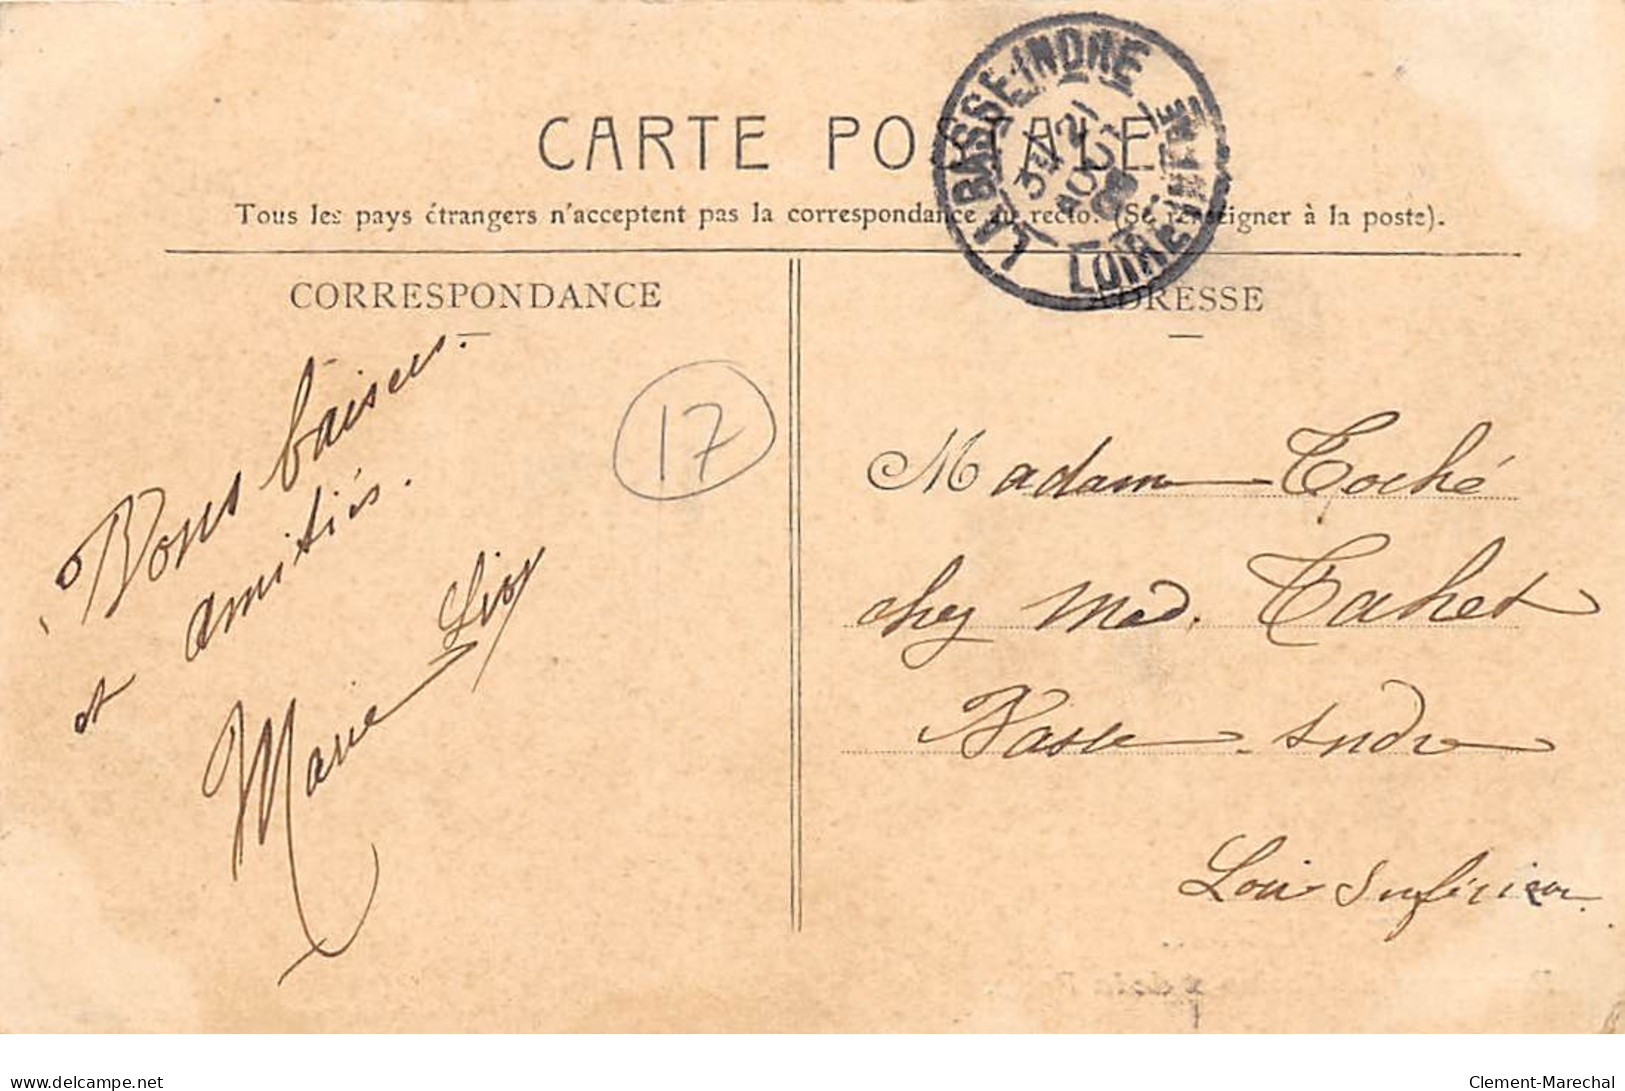 CARTE POSTALE
Tous les pays étrangers n'acceptent pas la correspondance au recto. (Se renseigner à la poste).
LA BASSE-INDRE
21
AOUT
LOIRE INFRE
CORRESPONDANCE
ADRESSE
Bons baisers.
et amitiés.
Marie
17
Madame Toché
chez Mad. Tahet
Basse-Indre
Loire Inférieure.
delcampe.net
Clement-Marechal